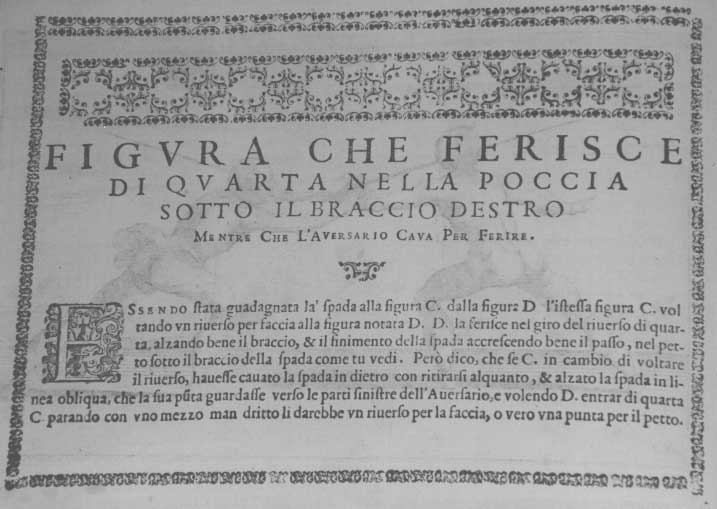 FIGVRA CHE FERISCE
DI QVARTA NELLA POCCIA
SOTTO IL BRACCIO DESTRO
MENTRE CHE L'AVERSARIO CAVA PER FERIRE.
ESSENDO ſtata guadagnata la' ſpada alla figura C. dalla figura D l'iſteſſa figura C. vol
tando vn riuerſo per faccia alla figura notata D. D. la feriſce nel giro del riuerſo di quar-
ta, alzando bene il braccio, & il finimento della ſpada accreſcendo bene il paſſo, nel pet-
to ſotto il braccio della ſpada come tu vedi. Però dico, che ſe C. in cambio di voltare
il riuerſo, haueſſe cauato la ſpada in dietro con ritirarſi alquanto, & alzato la ſpada in li-
nea obliqua, che la ſua pũta guardaſſe verſo le parti ſiniſtre dell'Auerſario, e volendo D. entrar di quarta
C. parando con vno mezzo man dritto li darebbe vn riuerſo per la faccia, o vero vna punta per il petto.